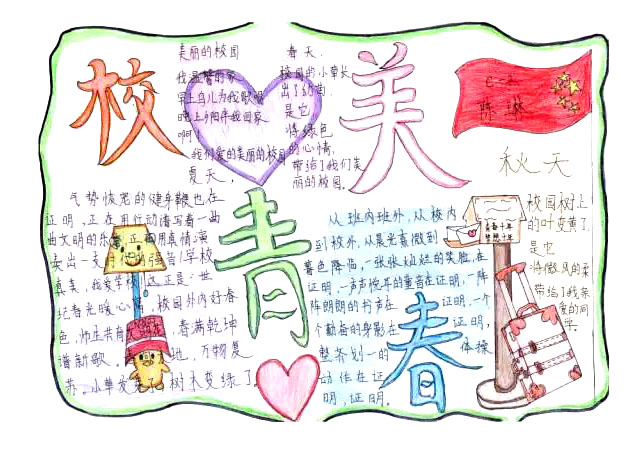 校
美丽的校园
我温馨的家
早上鸟儿为我歌唱
晚上夕阳伴我回家
啊
我们爱的美丽的校园
夏天,
春天.
校园的小草长
出了
是它
将绿色
的心情,
带给了我们美
丽的校园.
美
陈
秋天
校园树上
的叶变黄了.
是它
将微风的柔
带给了我亲
爱的同
学.
气势恢宏的健身鞭也在
证明,正在用行动谱写着一曲
曲文明的乐章,正在用真情演
奏出一支
真美,我爱学校!这正是:世
纪春光暖心情,校园外内好春
色,师生共有 春满乾坤
谱新歌. 地,万物复
苏.小草发芽了树木变绿了.
青
春
从班内班外,从校内
到校外,从晨光熹微到
暮色降临,一张张灿烂的笑脸在
证明,一声声悦耳的童音在证明,一阵
阵朗朗的书声在证明,一个
个勤奋的身影在证明,
整齐划一的体操
动作在证
明,证明.